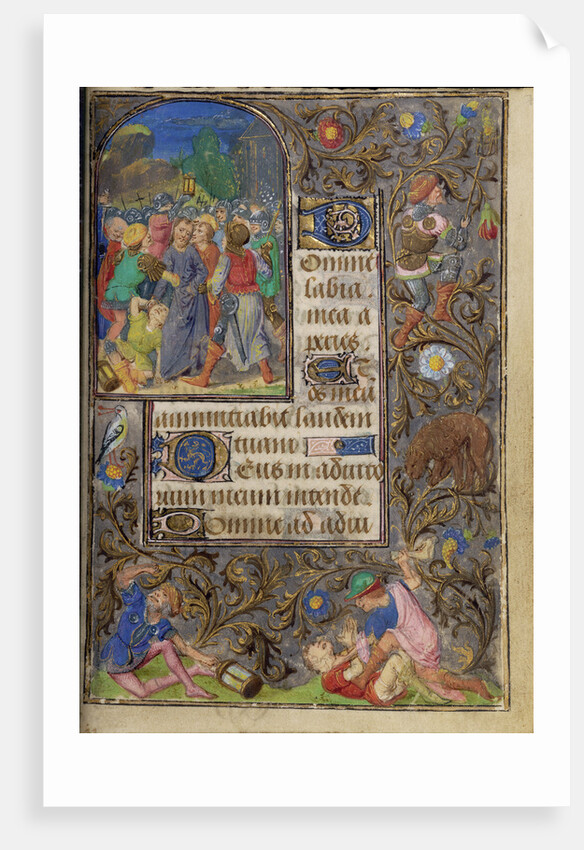 D
Omine
labia
mea a
peries
Et
os meū
annunciabit laudem
tuam
Deus in adiuto
rium meum intende
Domine ad adiu